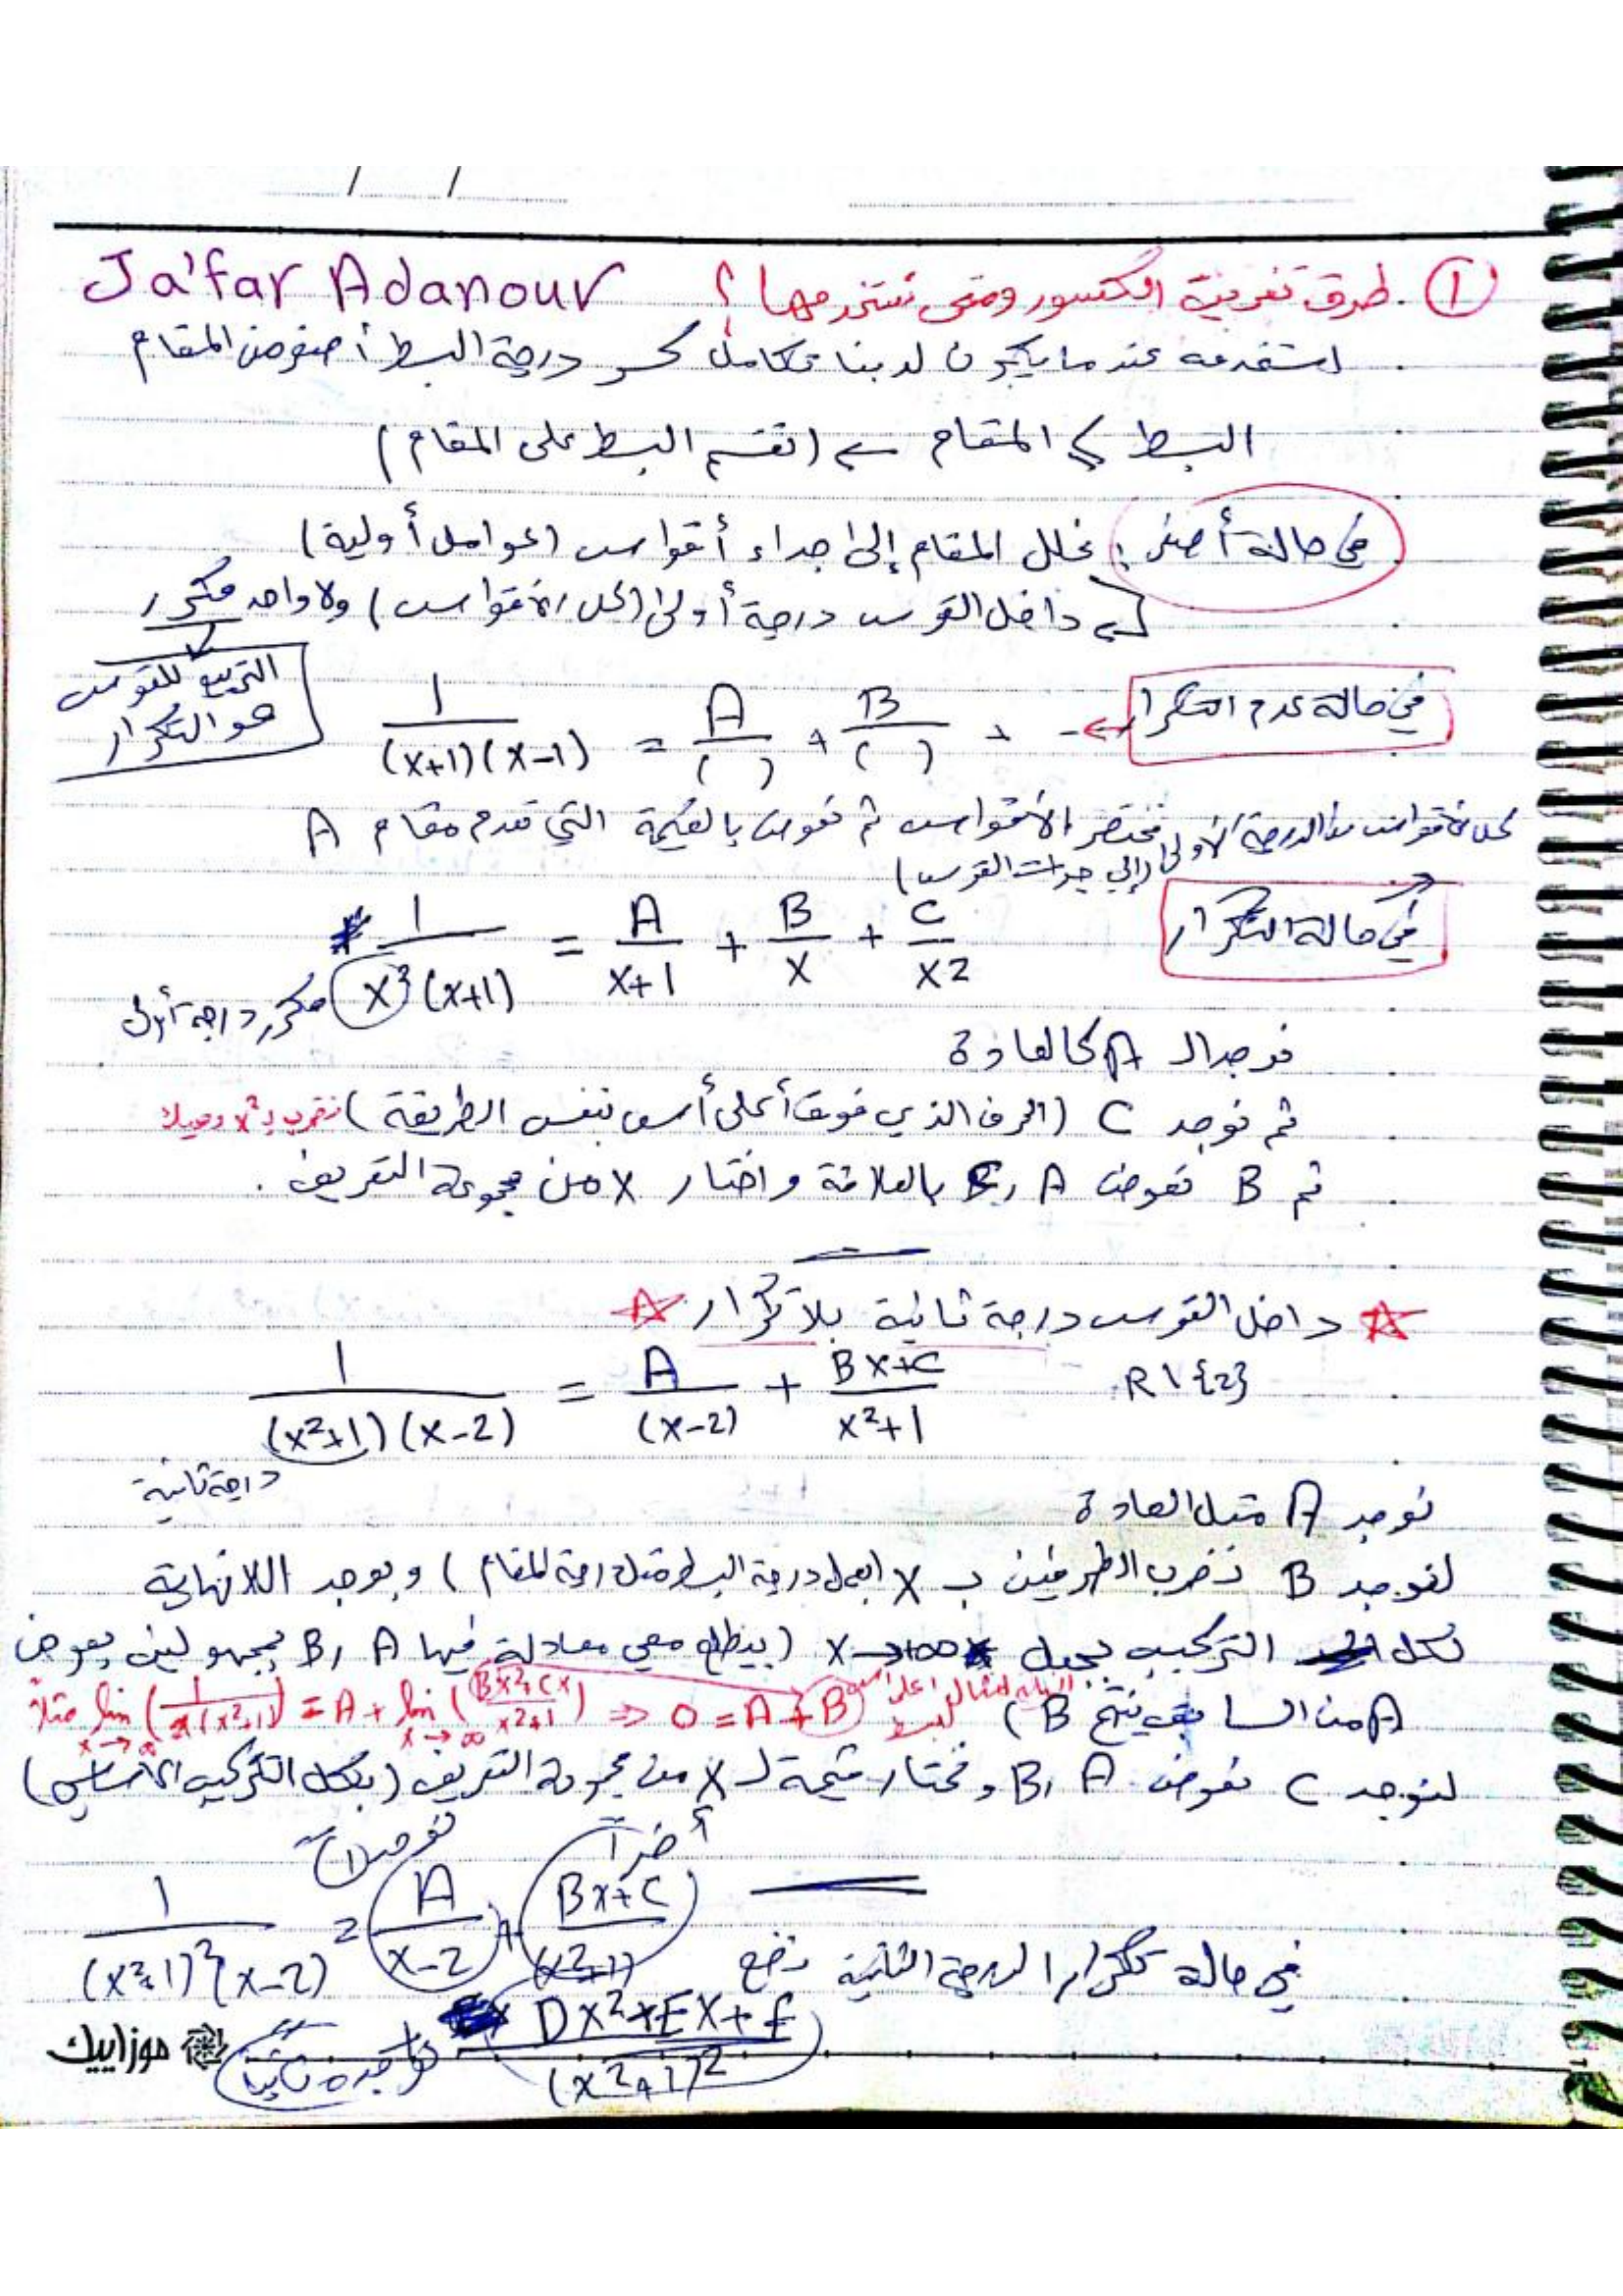 / /
① . طرق تفريق الكسور ومتى نستخدمها؟ Ja'far Adanour
نستخدمه عندما يكون لدينا تكامل كسر درجة البسط أصغر من المقام
البسط ≥ المقام ⇐ (نقسم البسط على المقام)
في حالة أصغر : نحلل المقام إلى جداء أقواس (عوامل أولية)
داخل القوس درجة أولى (كل الأقواس) ولا واحد مكرر
التربيع للقوس
هو التكرار
في حالة عدم التكرار
1/((x+1)(x-1)) = A/( ) + B/( ) + --
كل الأقواس من الدرجة الأولى نختصر الأقواس ثم نعوض بالقيمة التي تعدم مقام A
(إلي جوات القوس)
في حالة التكرار
* 1/(x³(x+1)) = A/(x+1) + B/x + C/x2
مكرر درجة أولى
نوجد الـ A كالعادة
ثم نوجد C (الحرف الذي فوق أعلى أس بنفس الطريقة) نضرب بـ x²
ثم B نعوض A و C بالعلاقة واختار x من مجموعة التعريف .
داخل القوس درجة ثانية بلا تكرار
1/((x²+1)(x-2)) = A/(x-2) + (Bx+C)/(x²+1) R\{2}
درجة ثانية
نوجد A مثل العادة
لنوجد B نضرب الطرفين بـ x (لجعل درجة البسط مثل درجة المقام) و نوجد اللانهاية
لكل التركيب بجعل x→+∞ (بيطلع معي معادلة فيها A و B بمجهولين بعوض
A من السابق ينتج B)
مثلاً lim x→∞ (1/(x(x²+1))) = A + lim x→∞ ((Bx²+Cx)/(x²+1)) ⇒ 0 = A + B
لنوجد C نعوض A و B و نختار قيمة لـ x من مجموعة التعريف (بكل التركيب الأساسي)
في حالة تكرار الدرجة الثانية نضع
1/((x²+1)²(x-2)) = A/(x-2) + (Bx+C)/(x²+1)
(Dx²+Ex+F)/(x²+1)²
موزاييك